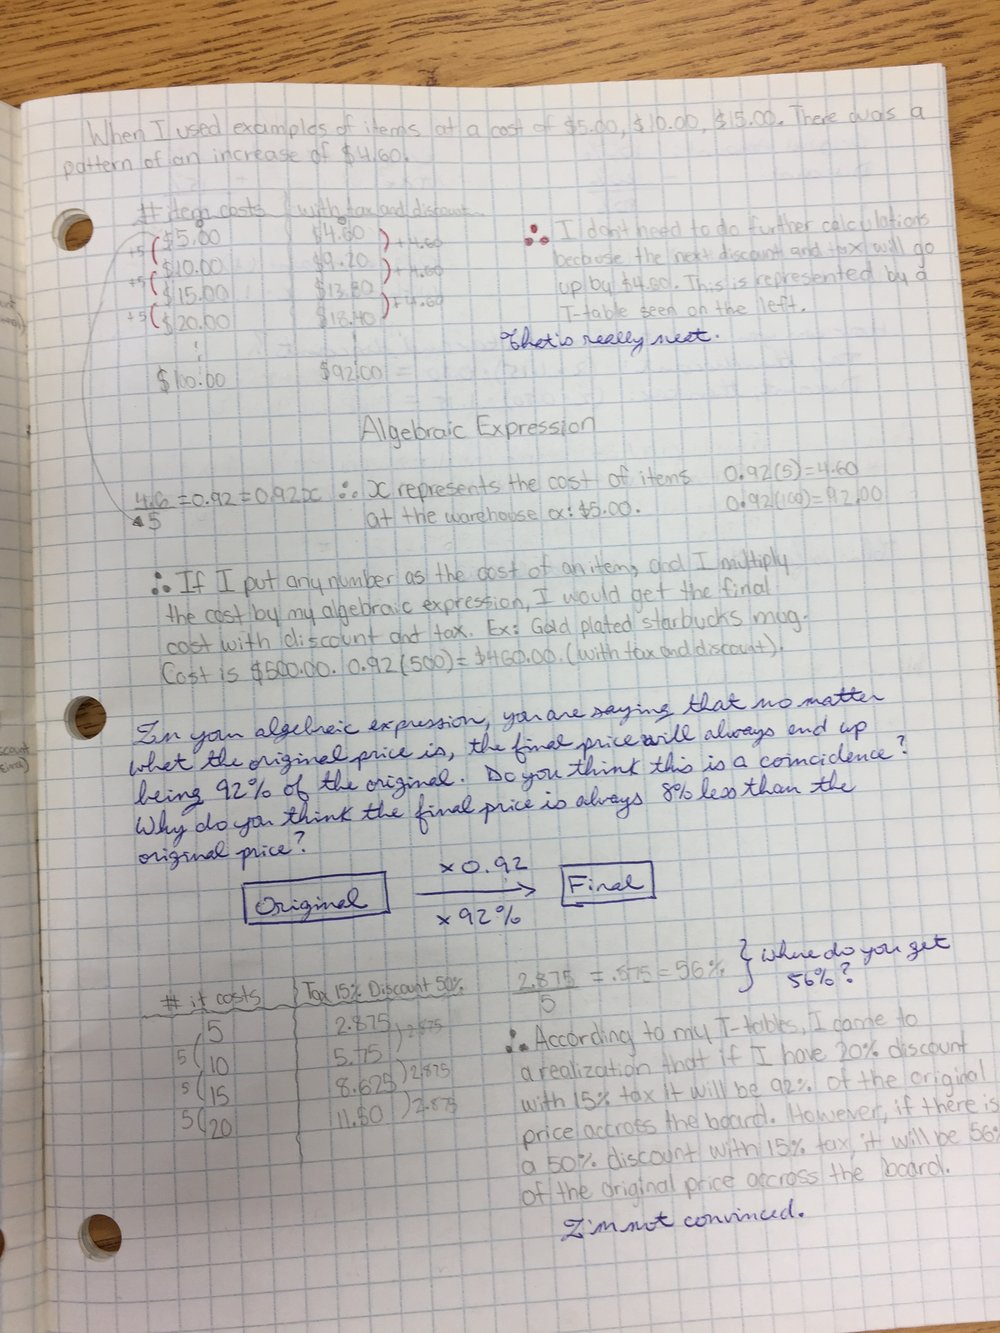 When I used examples of items at a cost of $5.00, $10.00, $15.00. There was a
pattern of an increase of $4.60.
# item costs with tax and discount
$5.00 $4.60
+5 +4.60
$10.00 $9.20
+5 +4.60
$15.00 $13.80
+5 +4.60
$20.00 $18.40
$100.00 $92.00
∴ I don't need to do further calculations
because the next discount and tax will go
up by $4.60. This is represented by a
T-table seen on the left.
That is really neat.
Algebraic Expression
4.6/5 = 0.92 = 0.92x ∴ x represents the cost of items
at the warehouse ex: $5.00.
0.92(5)=4.60
0.92(100)=92.00
∴ If I put any number as the cost of an item, and I multiply
the cost by my algebraic expression, I would get the final
cost with discount and tax. Ex: Gold plated starbucks mug.
Cost is $500.00. 0.92(500)=$460.00. (with tax and discount).
In your algebraic expression, you are saying that no matter
what the original price is, the final price will always end up
being 92% of the original. Do you think this is a coincidence?
Why do you think the final price is always 8% less than the
original price?
Original ×0.92 Final
×92%
# it costs Tax 15% Discount 50%
5 2.875
5 2.875
10 5.75
5 2.875
15 8.625
5 2.875
20 11.50
2.875/5 = .575 = 56% } Where do you get
56%?
∴ According to my T-tables, I came to
a realization that if I have 20% discount
with 15% tax it will be 92% of the original
price accross the board. However, if there is
a 50% discount with 15% tax, it will be 56%
of the original price accross the board.
I'm not convinced.